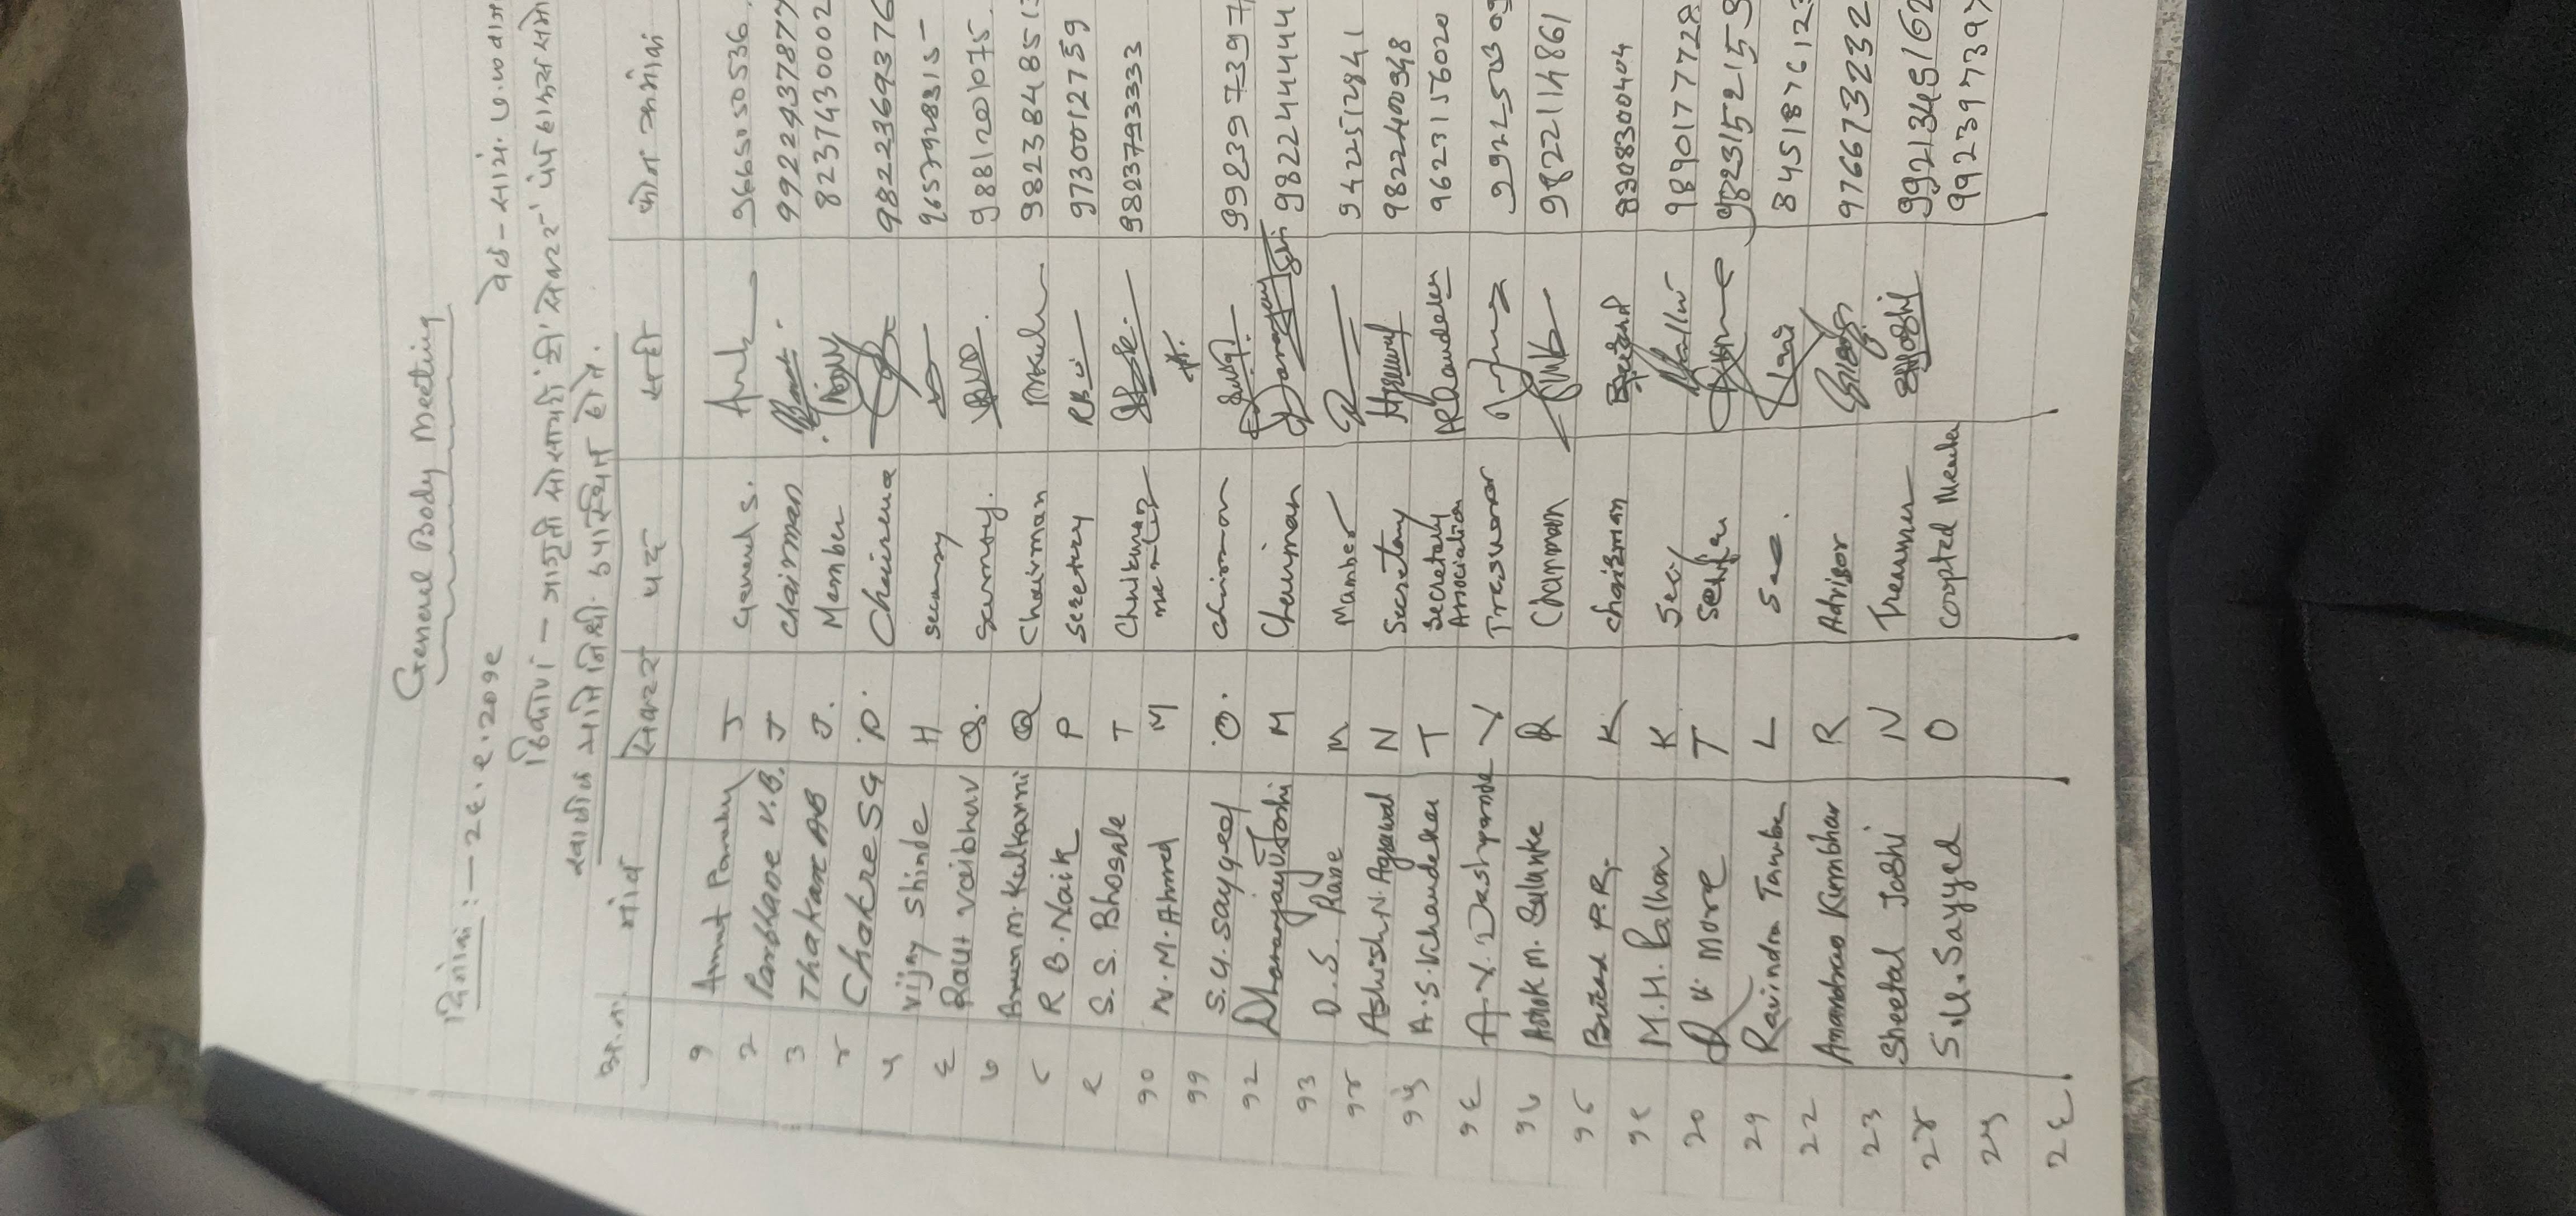 General Body Meeting
दिनांक :— २६.९.२०१९
वेळ – सायं. ७.०० वाज
ठिकाण — जागृती सोसायटी 'टी' सेक्टर पंप हाऊस समो
खालील प्रतिनिधी उपस्थित होते.
अ.न. नांव सेक्टर पद सही फोन क्रमांक
१ J General S. 9665050536
२ Parbhane V.B. J Chairman 9922437877
३ Thakare AB J. Member 8237430002
४ Chakre SG P 9822369376
५ Vijay Shinde H 9657928315
६ Raut Vaibhav Q. 9881201075
७ Arun M. Kulkarni Q Chairman 982384851
८ R B. Naik P Secretery 9730012759
९ S. S. Bhosale T 9823793333
१० N. M. Ahmed M
११ S.U. Sayyed O. Chairman 992397397
१२ Dhananjay V Joshi M Chairman 982244444
१३ D. S. Rane M Member 9422512841
१४ Ashish N. Agrawal N Secretary 9822400948
१५ A. S. Khandekar T Secretary Association AKhandekar 9623156020
१६ A. V. Deshpande V Tresurer
१७ Ashok M. Sulunke R Chairman 9822114861
१८ P.R. K Chairman 8308300404
१९ M. H. K Secy 9890177728
२० More T 982315215
२१ Ravindra L Sec. 845187612
२२ Anandrao Kumbhar R Advisor 976673232
२३ Sheetal Joshi N Treasurer SHJoshi 992134516
२४ S.U. Sayyed O coopted Member 992397397
२५
२६